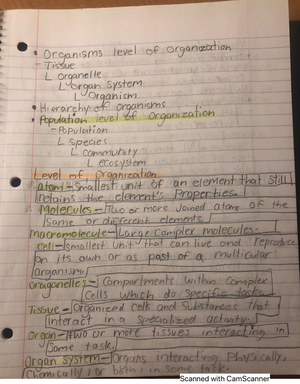 • Organisms level of organization
- Tissue
L organelle
L organ System
L Organism
• Hierarchy of organisms
• Population level of organization
- Population
L Species
L Community
L ecosystem
Level of Organization
atom - Smallest unit of an element that Still
retains the element's Properties.
Molecules - Two or more joined atoms of the
Same or different elements
Macromolecule - Large Complex molecules.
Cell - Smallest unit that can live and reproduce
on its own or as past of a multicular
organism.
Oragenelles - Compartments within Complex
Cells which do Specific tasks.
Tissue - Organized cells and Substances that
Interact in a specialized activity.
Organ - Two or more tissues interacting in
Some task.
Organ System - Organs interacting Physically,
Chemically, or both, in some task.
Scanned with CamScanner